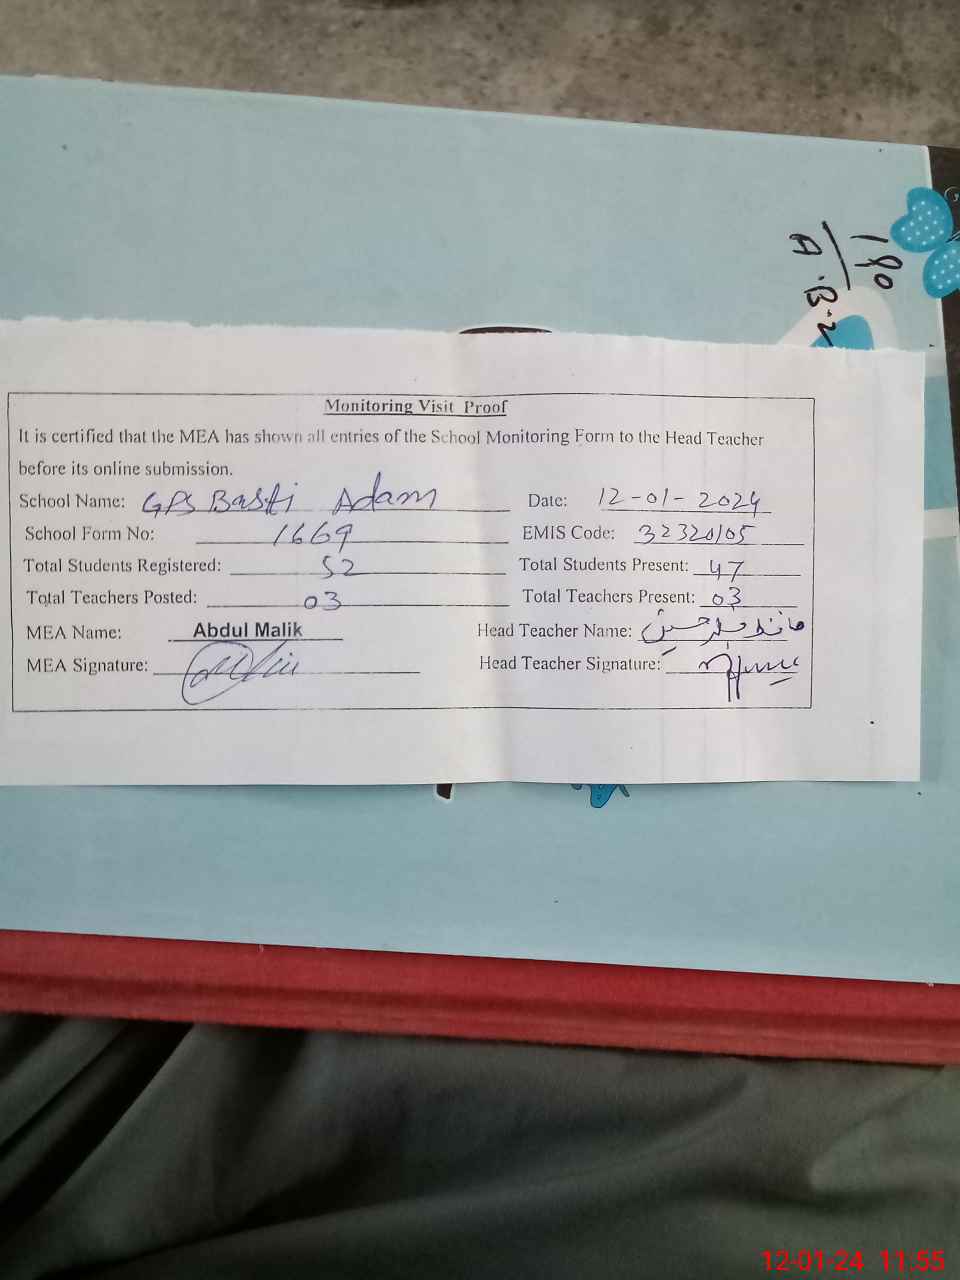 190
A.B-2
Monitoring Visit Proof
It is certified that the MEA has shown all entries of the School Monitoring Form to the Head Teacher
before its online submission.
School Name: GPS Basti Adam Date: 12-01-2024
School Form No: 1669 EMIS Code: 32320105
Total Students Registered: 52 Total Students Present: 47
Total Teachers Posted: 03 Total Teachers Present: 03
MEA Name: Abdul Malik Head Teacher Name: حسین
MEA Signature: Head Teacher Signature:
12-01-24 11:55